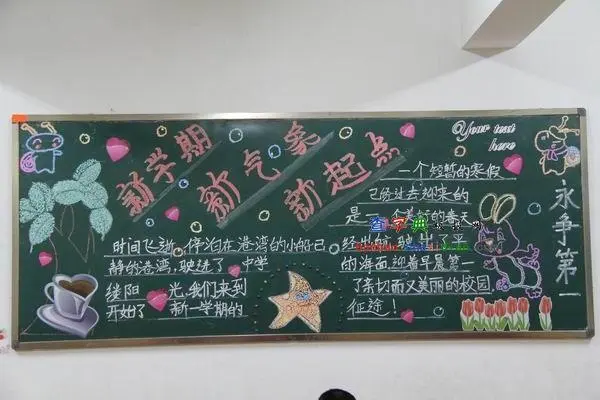 新学期
新气象
新起点
@Your text
here
一个短暂的寒假
已经过去迎来的
是一个 的春天
时间飞逝,停泊在港湾的小船已
经出航,驶出了平
静的港湾,驶进了 中学
的海面,迎着早晨第一
缕阳 光,我们来到
了亲切而又美丽的校园
开始了 新一学期的
征途!
永争第一
查字典